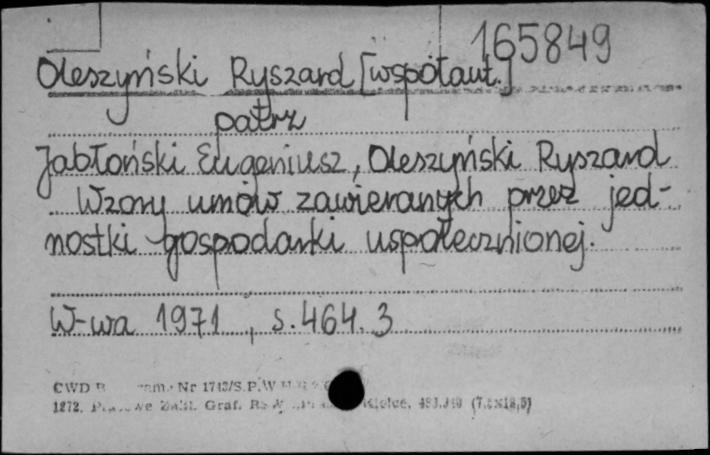 165849
Oleszyński Ryszard [współaut.]
patrz
Jabłoński Eugeniusz, Oleszyński Ryszard
Wzory umów zawieranych przez jed-
nostki gospodarki uspołecznionej.
W-wa 1971, s. 464. 3
CWD Nr 1713/S.P.W
1272. Graf. Kielce. (7,5x12,5)